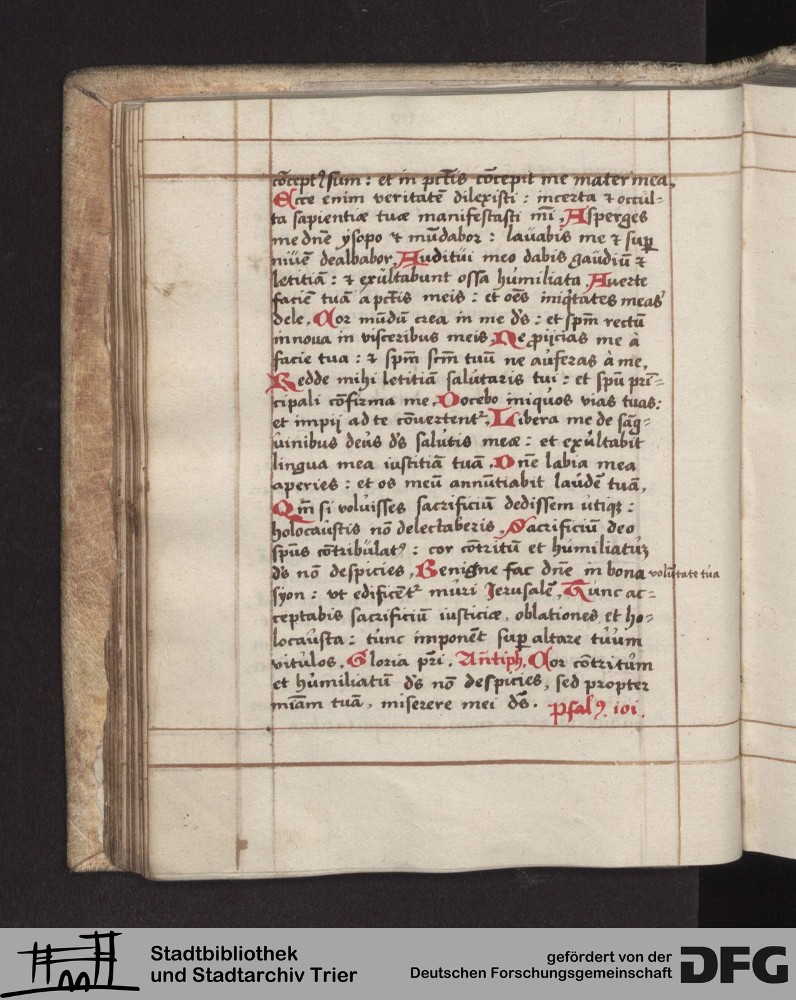 cōcept⁹ sum : et in pctīs cōcepit me mater mea.
Ecce enim veritatē dilexisti : incerta ⁊ occul-
ta sapientiæ tuæ manifestasti m̄i, Asperges
me dn̄e ysopo ⁊ mūdabor : lauabis me ⁊ sup̄
niuē dealbabor, Auditui meo dabis gaudiū ⁊
letitiā : ⁊ exultabunt ossa humiliata, Auerte
faciē tuā a pctīs meis : et oēs iniqtates meas
dele, Cor mūdū crea in me ds̄ : et spm̄ rectū
innoua in visceribus meis, Ne ꝓijcias me à
facie tua : ⁊ spm̄ scm̄ tuū ne auferas à me,
Redde mihi letitiā salutaris tui : et spū prī-
cipali cōfirma me, Docebo iniquos vias tuas :
et impij ad te cōuertent᷑, Libera me de sāg-
uinibus deus ds̄ salutis meæ : et exultabit
lingua mea iustitiā tuā, Dn̄e labia mea
aperies : et os meū annūtiabit laudē tuā,
Qm̄ si voluisses sacrificiū dedissem utiqꝫ :
holocaustis nō delectaberis, Sacrificiū deo
spūs cōtribulat⁹ : cor cōtritū et humiliatuꝫ
ds̄ nō despicies, Benigne fac dn̄e in bona voluntate tua
syon : vt edificēt᷑ muri Jerusalē, Tunc ac-
ceptabis sacrificiū iusticiæ, oblationes et ho-
locausta : tunc imponēt sup̄ altare tuum
vitulos, Gloria pr̄i, Antiph, Cor cōtritum
et humiliatū ds̄ nō despicies, sed propter
miām tuā, miserere mei ds̄. Psal⁹. ioi.
Stadtbibliothek
und Stadtarchiv Trier
gefördert von der
Deutschen Forschungsgemeinschaft
DFG